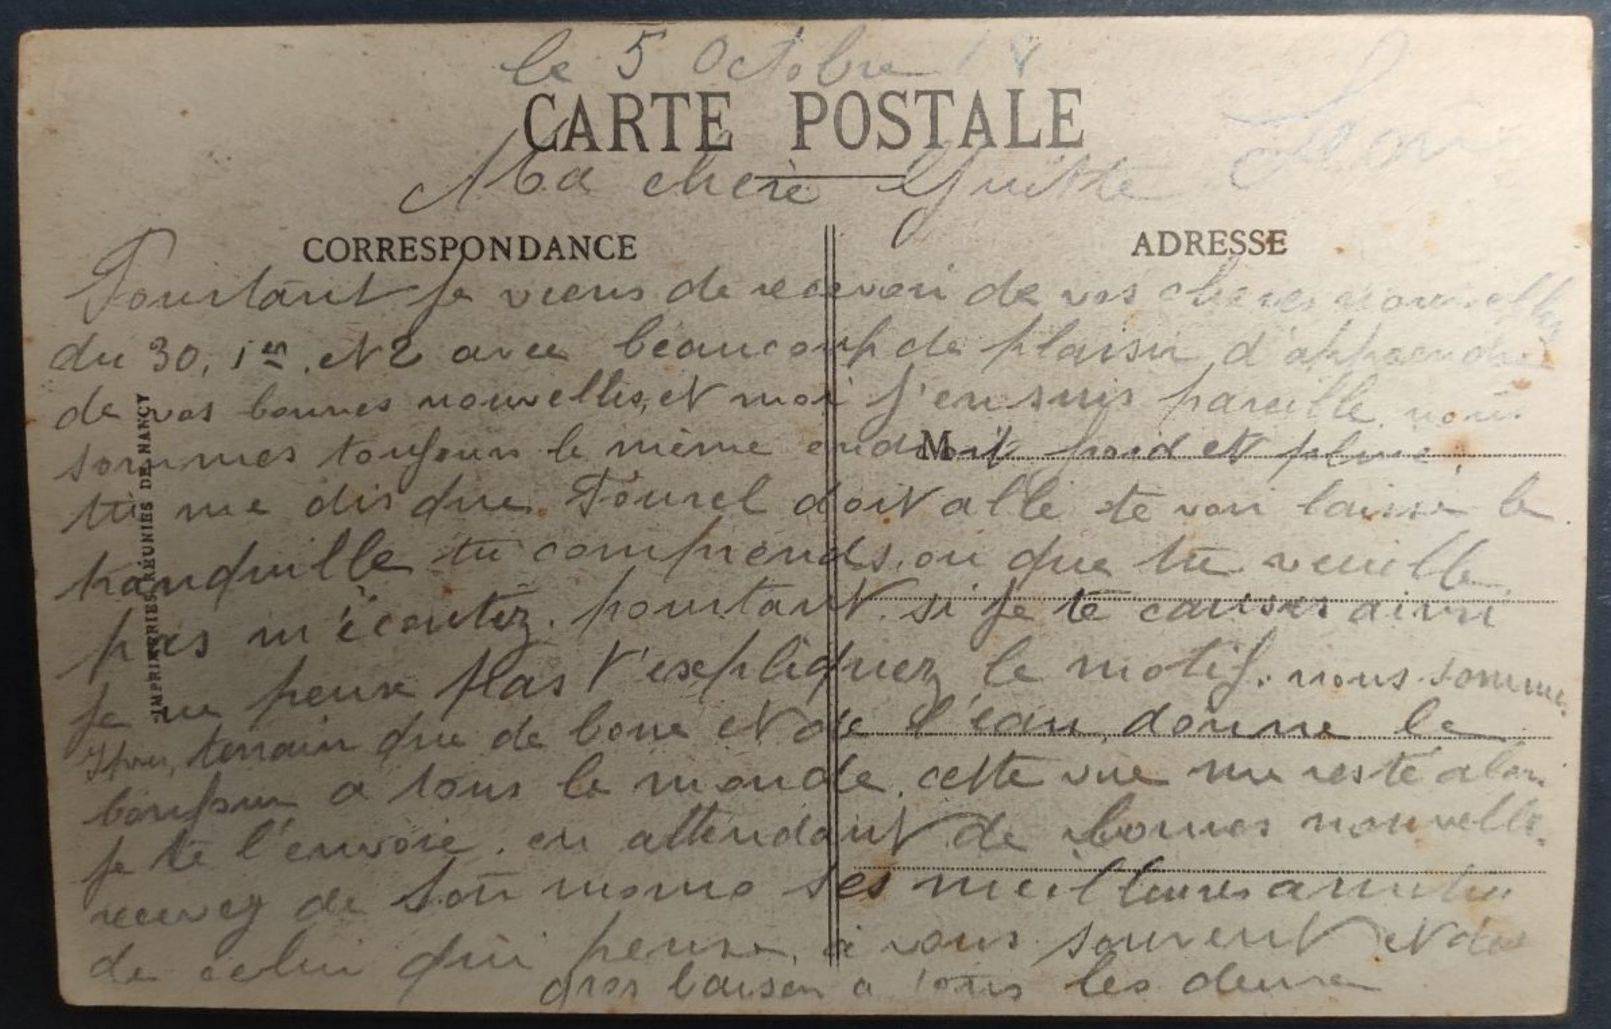 le 5 Octobre 18
CARTE POSTALE
Ma chère Guitte
CORRESPONDANCE
ADRESSE
Pourtant je viens de recevoir de vos cheres nouvelles
du 30, 1er, et 2 avec beaucoup de plaisir d'apprendre
de vos bonnes nouvelles, et moi j'en suis pareille nous
sommes toujours le même endroit froid et pluie.
M
tu me dis que Tourel doit allé te voir laisse le
tranquille tu comprends, ou que tu veuille
pas m'écoutez. pourtant si je te causes ainsi
je ne peux plas t'expliquez le motif. nous somme
terrain que de boue et de l'eau, donne le
bonjour a tous le monde. cette vue me reste alors
je te l'envoie. en attendant de bonnes nouvelles.
recevez de ton momo ses meilleures amitiés
de celui qui pense à vous souvent et des
gros baisers a tous les deux
IMPRIMERIES RÉUNIES DE NANCY